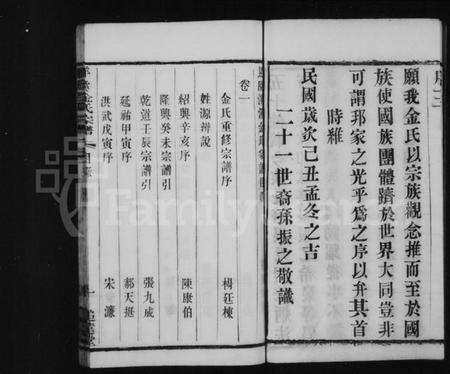 序三
願我金氏以宗族觀念推而至於國
族使國族團體躋於世界大同豈非
可謂邦家之光乎爲之序以弁其首
時維
民國歲次己丑孟冬之吉
二十一世裔孫振之敬識
卷一
金氏重修宗譜序 楊廷棟
姓源辨說
紹興辛亥序 陳康伯
隆興癸未宗譜引
乾道壬辰宗譜引 張九成
延祐甲寅序 郝天挺
洪武戊寅序 宋濂
金氏宗譜